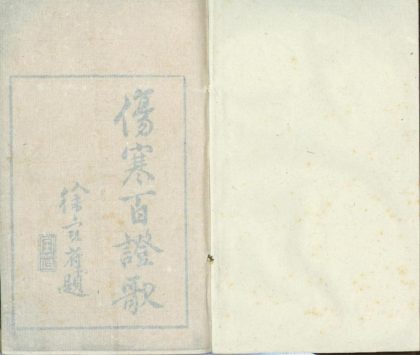 傷寒百證歌
徐立存題